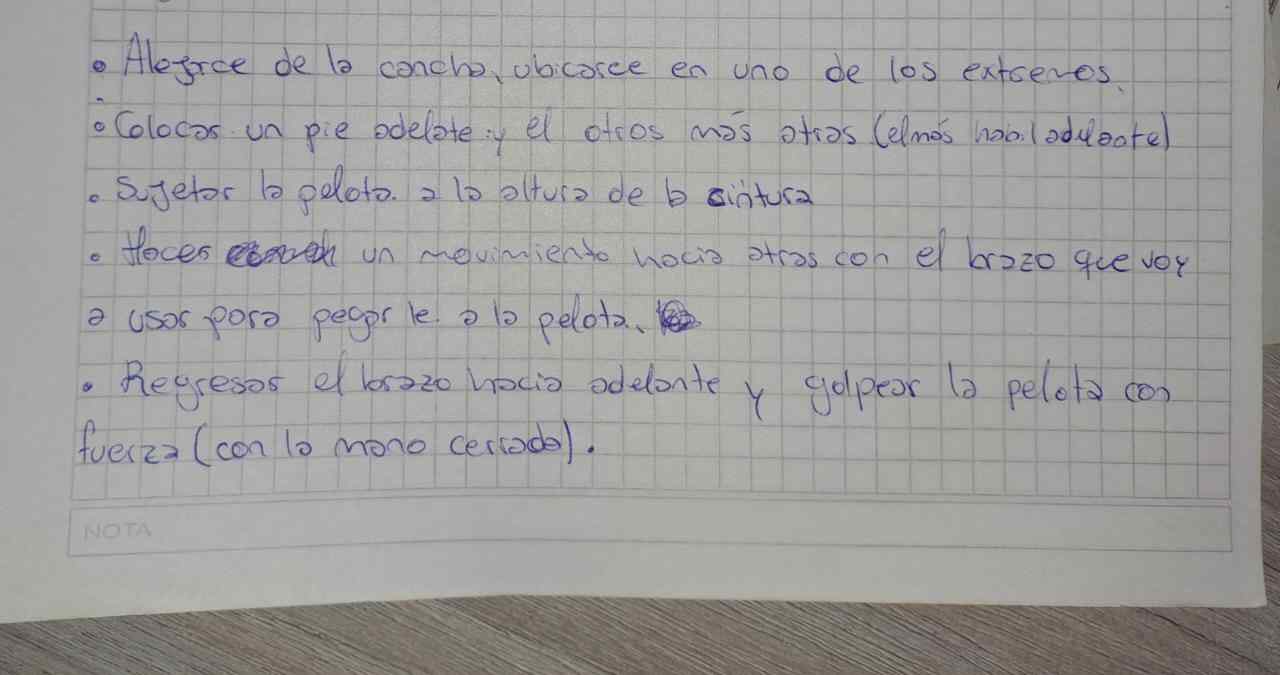 • Alejarce de la cancha, ubicarce en uno de los extremos.
• Colocar un pie adelate y el otros más atras (el más habil adelante)
• Sujetar la pelota a la altura de la sintura
• Hacer un movimiento hacia atras con el brazo que voy
a usar para pegar le a la pelota.
• Regresar el brazo hacia adelante y golpear la pelota con
fuerza (con la mano cerrada).
NOTA